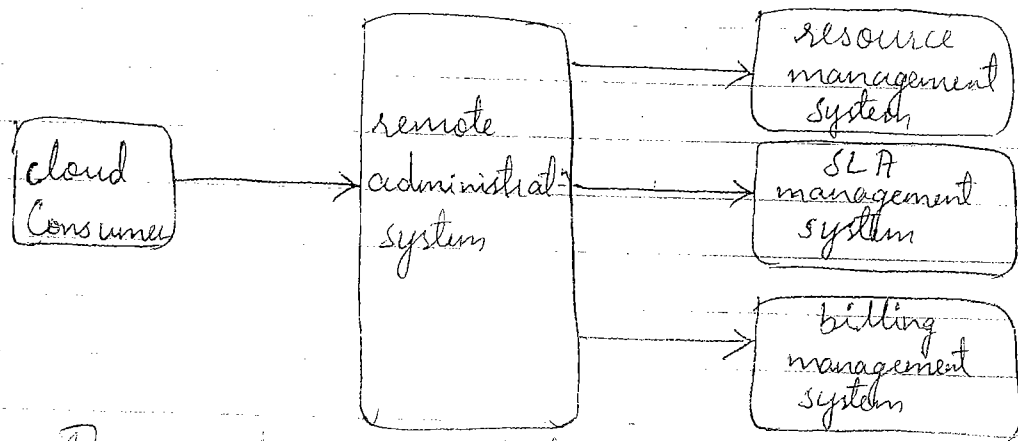 cloud
Consumer
remote
administrat-
system
resource
management
system
SLA
management
system
billing
management
system